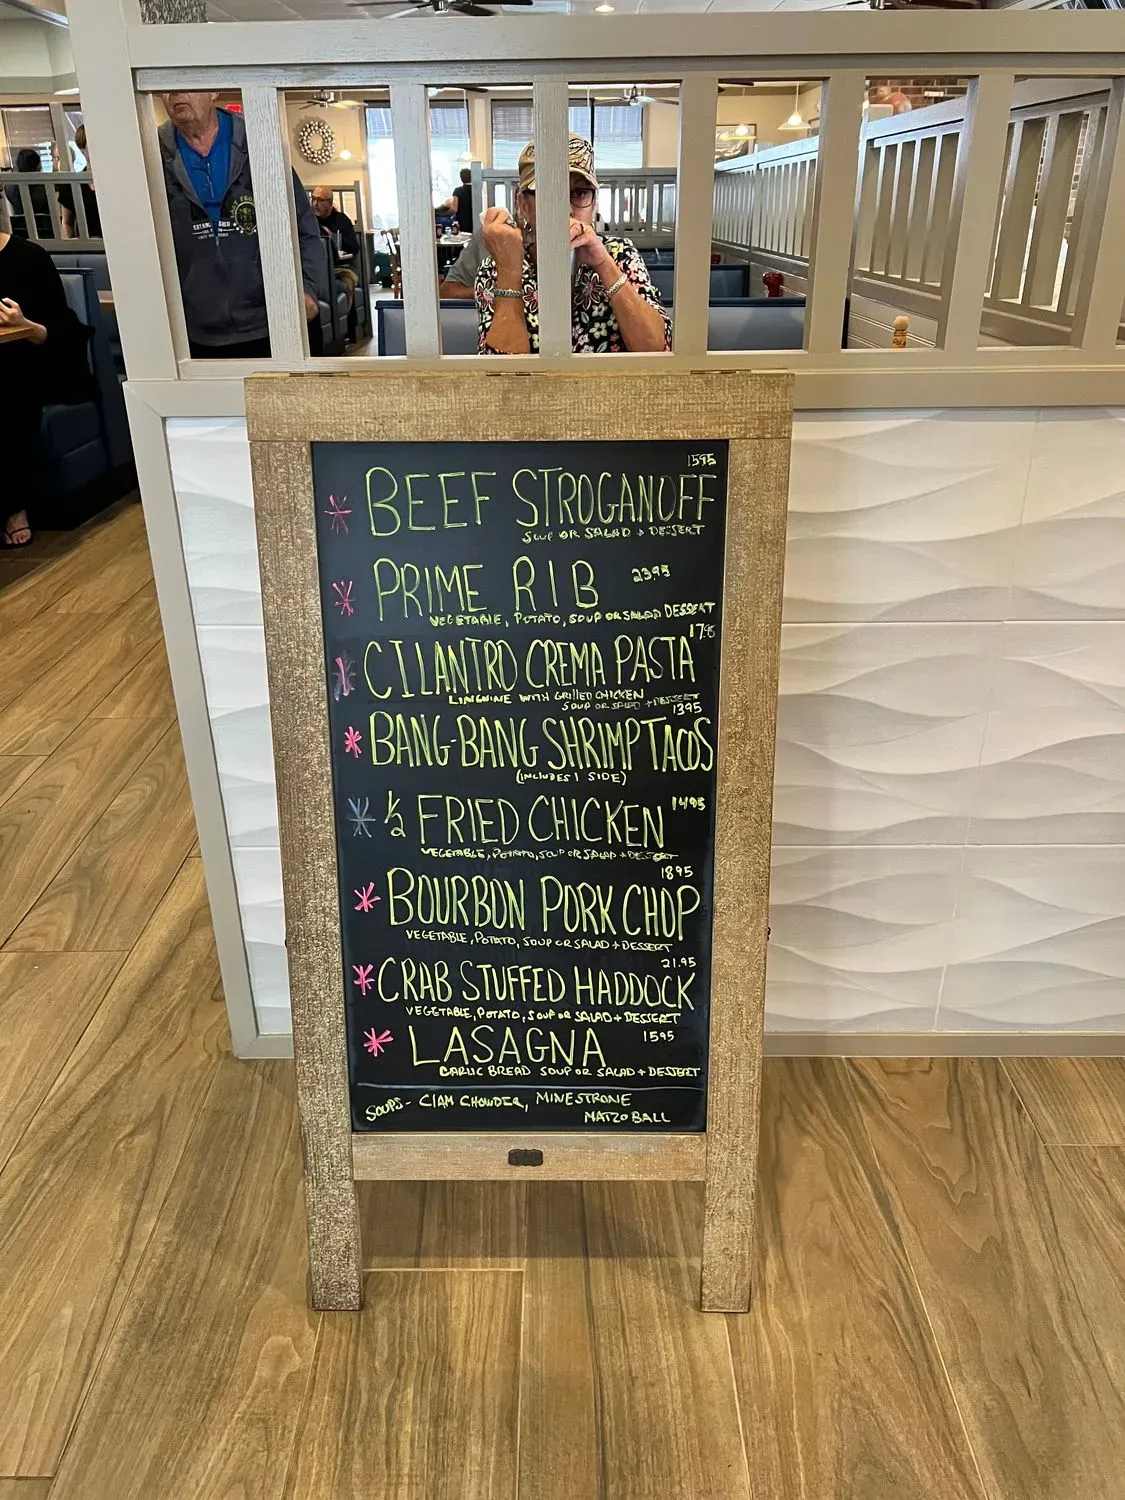 1595
BEEF STROGANOFF
SOUP OR SALAD + DESSERT
PRIME RIB 2395
VEGETABLE, POTATO, SOUP OR SALAD DESSERT
1795
CILANTRO CREMA PASTA
LINGUINE WITH GRILLED CHICKEN
SOUP OR SALAD + DESSERT
1395
BANG-BANG SHRIMP TACOS
(INCLUDES 1 SIDE)
½ FRIED CHICKEN 1495
VEGETABLE, POTATO, SOUP OR SALAD + DESSERT
1895
BOURBON PORK CHOP
VEGETABLE, POTATO, SOUP OR SALAD + DESSERT
21.95
CRAB STUFFED HADDOCK
VEGETABLE, POTATO, SOUP OR SALAD + DESSERT
LASAGNA 1595
GARLIC BREAD SOUP OR SALAD + DESSERT
SOUPS - CLAM CHOWDER, MINESTRONE
MATZO BALL